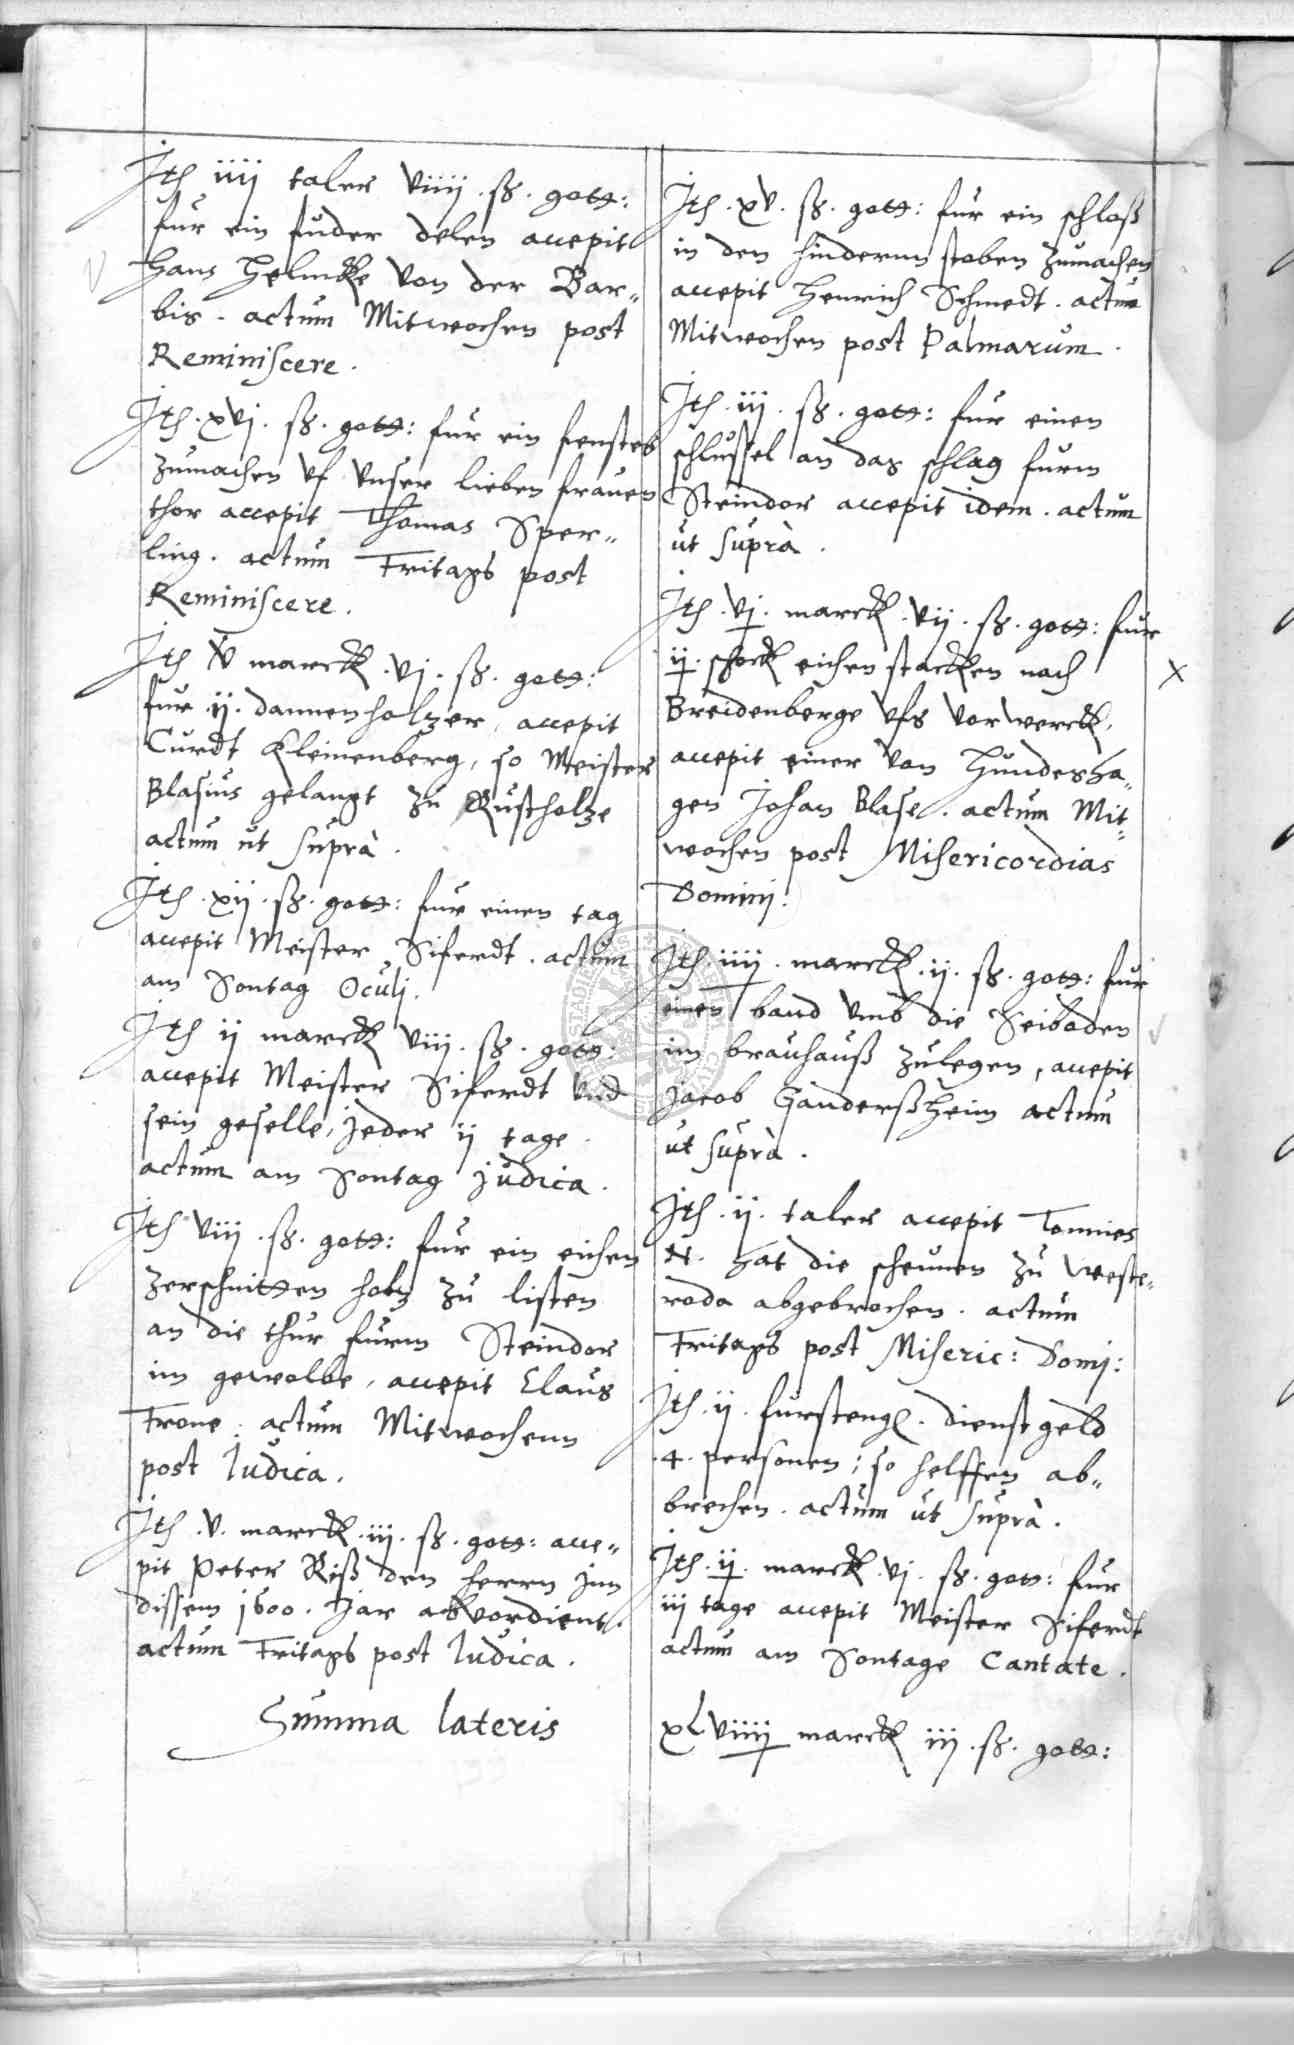 Ite iiij taler viiij . ß. gott:
fur ein fuder delen accepit
Hans Helmcke von der Bar„
bis . actum Mitwochen post
Reminiscere .
Ite . xvj . ß. gott: fur ein fenster
zumachen vf vnser lieben frauen
thor accepit Thomas Sper„
ling . actum Fritags post
Reminiscere .
Ite v marck . vj . ß. gott:
fur ij . dannenholtzer, accepit
Curdt Kleinenberg, so Meister
Blasius gelangt zu Rustholtze
actum ut suprà .
Ite . xij . ß. gott: fur einen tag
accepit Meister Siferdt . actum
am Sontag Oculj .
Ite ij marck viij . ß. gott:
accepit Meister Siferdt vnd
sein geselle, jeder ij tage .
actum am Sontag Judica .
Ite viij . ß. gott: fur ein eichen
zerschnitten holtz zu listen
an die thur furm Steindor
im gewolbe, accepit Claus
Frone . actum Mitwochenn
post Iudica .
Ite . v . marck . iij . ß. gott: acce„
pit Peter Riß den herrn jnn
dissem 1600 . Jar abvordient .
actum Fritags post Iudica .
Summa lateris
Ite . xv . ß. gott: fur ein schloß
in den hindernn stoben zumachen
accepit Henrich Schmedt . actum
Mitwochen post Palmarum .
Ite . iij . ß. gott: fur einen
schlussel an das schlag furm
Steindor accepit idem . actum
ut suprà .
Ite . vj . marck . vij . ß. gott: fur
ij . schock eichen stacken nach
Breidenberge vfs vorwerck,
accepit einer von Hundesha„
gen Johan Blase . actum Mit„
wochen post Misericordias
Dominj .
Ite . iiij . marck . ij . ß. gott: fur
einen band vmb die Seiboden
im brauhauß zulegen, accepit
Jacob Ganderßheim actum
ut suprà .
Ite . ij . taler accepit Tonnies
N . hat die scheunen zu Weste„
roda abgebrochen . actum
Fritags post Miseric: Domj:
Ite . ij . furstengl . dienstgeld
. 4 . personen; so helffen ab„
brechen . actum ut suprà .
Ite . ij . marck . vj . ß. gott: fur
iij tage accepit Meister Siferdt
actum am Sontage Cantate .
xlviiij marck iij . ß. gott: